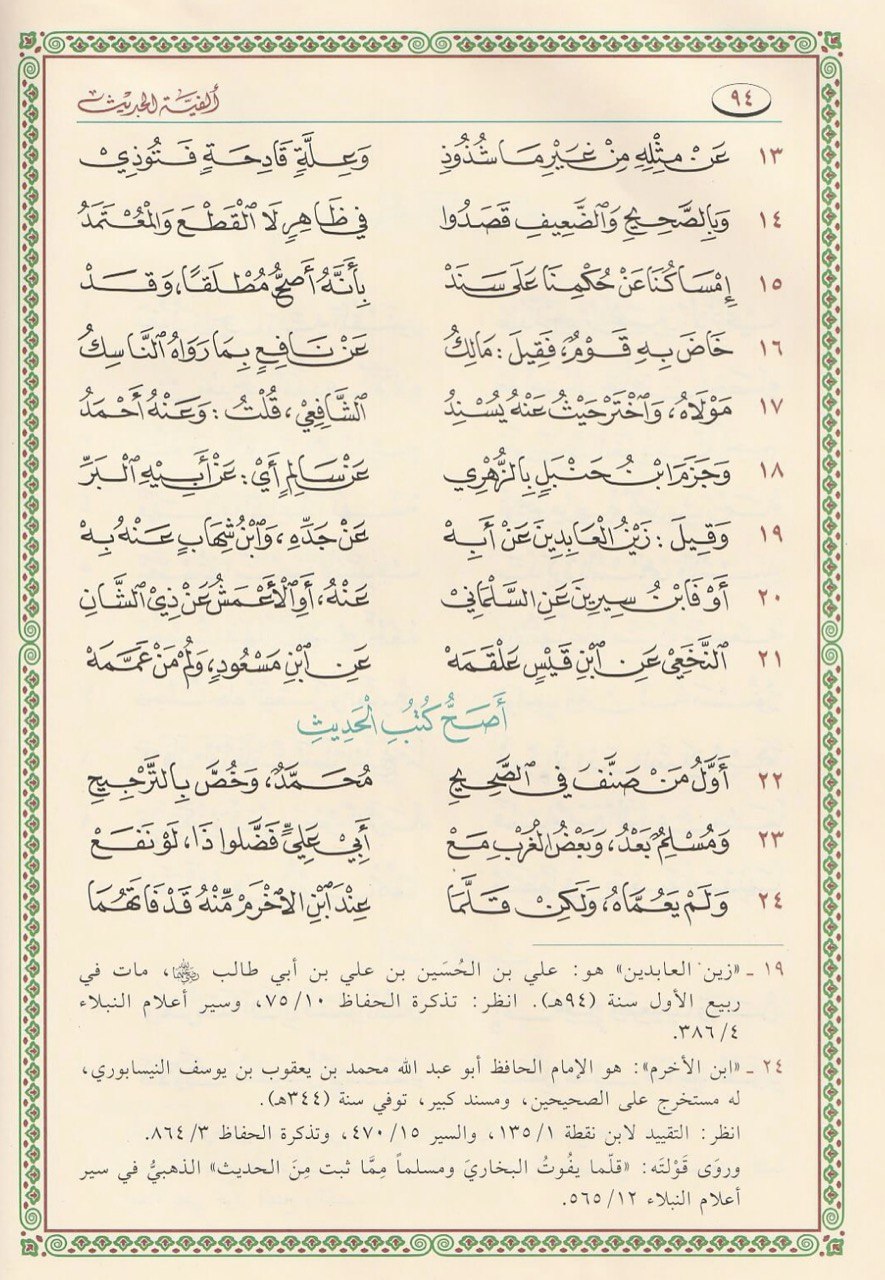 ٩٤ ألفيّة الحديث
١٣ عَنْ مِثْلِهِ مِنْ غَيْرِ مَا شُذُوذِ وَعِلَّةٍ قَادِحَةٍ فَتُوذِيْ
١٤ وَبِالصَّحِيحِ وَالضَّعِيفِ قَصَدُوا فِي ظَاهِرٍ لَا الْقَطْعَ وَالْمُعْتَمَدُ
١٥ إِمْسَاكُنَا عَنْ حُكْمِنَا عَلَى سَنَدْ بِأَنَّهُ أَصَحُّ مُطْلَقًا، وَقَدْ
١٦ خَاضَ بِهِ قَوْمٌ، فَقِيلَ: مَالِكُ عَنْ نَافِعٍ بِمَا رَوَاهُ النَّاسِكُ
١٧ مَوْلَاهُ، وَاخْتَرْ حَيْثُ عَنْهُ يُسْنِدُ الشَّافِعِيْ، قُلْتُ: وَعَنْهُ أَحْمَدُ
١٨ وَجَزَمَ ابْنُ حَنْبَلٍ بِالزُّهْرِي عَنْ سَالِمٍ أَيْ: عَنْ أَبِيْهِ الْبَرِّ
١٩ وَقِيلَ: زَيْنُ الْعَابِدِينَ عَنْ أَبِهْ عَنْ جَدِّهِ، وَابْنُ شِهَابٍ عَنْهُ بِهْ
٢٠ أَوْ فَابْنُ سِيرِينَ عَنِ السَّلْمَانِيْ عَنْهُ، أَوِ الْأَعْمَشُ عَنْ ذِيْ الشَّانِ
٢١ النَّخَعِيْ عَنِ ابْنِ قَيْسٍ عَلْقَمَهْ عَنِ ابْنِ مَسْعُودٍ، وَلُمْ مَنْ عَمَّمَهْ
أَصَحُّ كُتُبِ الْحَدِيثِ
٢٢ أَوَّلُ مَنْ صَنَّفَ فِي الصَّحِيحِ مُحَمَّدٌ، وَخُصَّ بِالتَّرْجِيحِ
٢٣ وَمُسْلِمٌ بَعْدُ، وَبَعْضُ الْغَرْبِ مَعْ أَبِيْ عَلِيٍّ فَضَّلُوا ذَا، لَوْ نَفَعْ
٢٤ وَلَمْ يَعُمَّاهُ، وَلَكِنْ قَلَّمَا عِنْدَ ابْنِ الاخْرَمْ مِنْهُ قَدْ فَاتَهُمَا
١٩ ـ «زين العابدين» هو: علي بن الحُسَين بن علي بن أبي طالب ﷺ، مات في
ربيع الأول سنة (٩٤هـ). انظر: تذكرة الحفاظ ٧٥/١٠، وسير أعلام النبلاء
٣٨٦/٤.
٢٤ ـ «ابن الأخرم»: هو الإمام الحافظ أبو عبد الله محمد بن يعقوب بن يوسف النيسابوري،
له مستخرج على الصحيحين، ومسند كبير، توفي سنة (٣٤٤هـ).
انظر: التقييد لابن نقطة ١٣٥/١، والسير ٤٧٠/١٥، وتذكرة الحفاظ ٨٦٤/٣.
وروَى قَوْلتَه: «قلّما يفُوتُ البخاريَ ومسلماً مِمَّا ثبت مِنَ الحديث» الذهبيُّ في سير
أعلام النبلاء ٥٦٥/١٢.